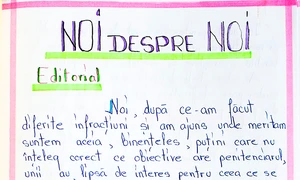 NOI DESPRE NOI
Editorial
Noi, după ce-am făcut
diferite infracțiuni și am ajuns unde meritam
suntem aceia, bineînteles, puțini care nu
înteleg corect ce obiective are penitenciarul,
unii au lipsă de interes pentru ceea ce se